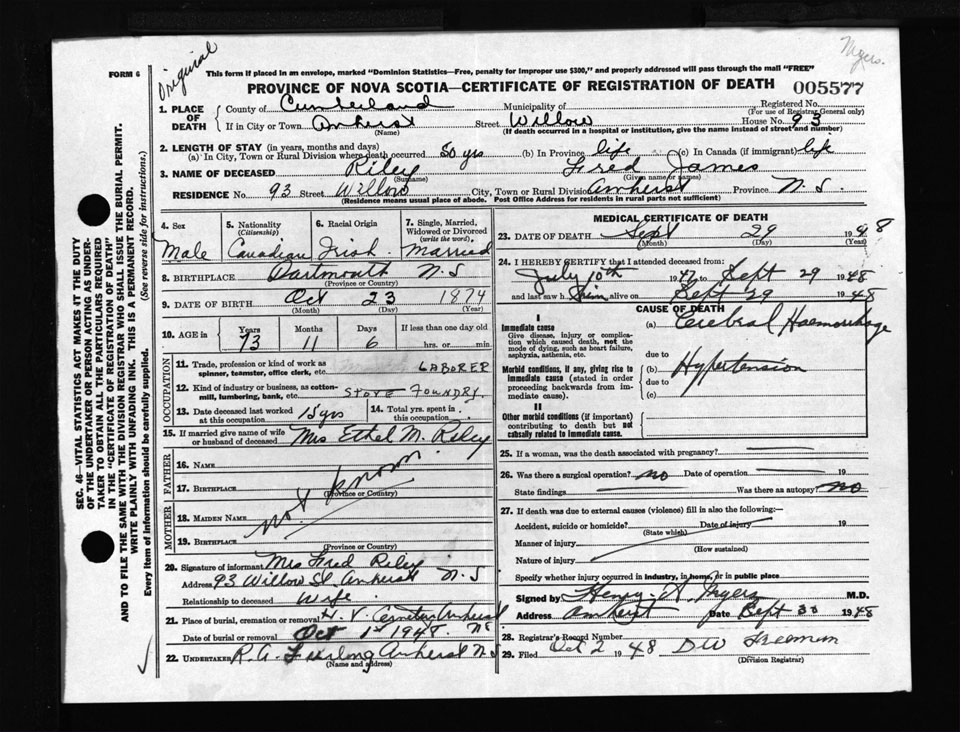 Original
Myers.
FORM 6
This form if placed in an envelope, marked "Dominion Statistics—Free, penalty for improper use $300," and properly addressed will pass through the mail "FREE"
PROVINCE OF NOVA SCOTIA—CERTIFICATE OF REGISTRATION OF DEATH 005577
SEC. 46—VITAL STATISTICS ACT MAKES IT THE DUTY
OF THE UNDERTAKER OR PERSON ACTING AS UNDER-
TAKER TO OBTAIN ALL THE PARTICULARS REQUIRED
IN THE "CERTIFICATE OF REGISTRATION OF DEATH"
AND TO FILE THE SAME WITH THE DIVISION REGISTRAR WHO SHALL ISSUE THE BURIAL PERMIT.
WRITE PLAINLY WITH UNFADING INK. THIS IS A PERMANENT RECORD.
Every item of information should be carefully supplied. (See reverse side for instructions.)
1. PLACE OF DEATH
County of Cumberland Municipality of Registered No.
(For use of Registrar General only)
If in City or Town Amherst Street Willow House No. 93
(Name) (If death occurred in a hospital or institution, give the name instead of street and number)
2. LENGTH OF STAY (in years, months and days)
(a) In City, Town or Rural Division where death occurred 50 yrs (b) In Province life (c) In Canada (if immigrant) life
3. NAME OF DECEASED Riley Fred James
(Surname) (Given name or names)
RESIDENCE No. 93 Street Willow City, Town or Rural Division Amherst Province N.S.
(Residence means usual place of abode. Post Office Address for residents in rural parts not sufficient)
4. Sex
Male
5. Nationality
(Citizenship)
Canadian
6. Racial Origin
Irish
7. Single, Married, Widowed or Divorced
(write the word.)
Married
8. BIRTHPLACE Dartmouth N.S
(Province or Country)
9. DATE OF BIRTH Oct 23 1874
(Month) (Day) (Year)
10. AGE in Years Months Days If less than one day old
73 11 6 hrs. or min.
OCCUPATION
11. Trade, profession or kind of work as
spinner, teamster, office clerk, etc. LABORER
12. Kind of industry or business, as cotton-
mill, lumbering, bank, etc. STOVE FOUNDRY.
13. Date deceased last worked at this occupation 15 yrs
14. Total yrs. spent in this occupation
15. If married give name of wife
or husband of deceased Mrs Ethel M. Riley
FATHER
16. NAME
17. BIRTHPLACE
(Province or Country)
not known
MOTHER
18. MAIDEN NAME
19. BIRTHPLACE
(Province or Country)
20. Signature of informant Mrs Fred Riley
Address 93 Willow St Amherst N.S
Relationship to deceased Wife
21. Place of burial, cremation or removal H. V. Cemetery Amherst
Date of burial or removal Oct 1st 1948.
22. UNDERTAKER R. A. Furlong Amherst N.S.
(Name and address)
MEDICAL CERTIFICATE OF DEATH
23. DATE OF DEATH Sept 29 1948
(Month) (Day) (Year)
24. I HEREBY CERTIFY that I attended deceased from:
July 10th 1947 to Sept 29 1948
and last saw him alive on Sept 29 1948
CAUSE OF DEATH
I
Immediate cause
Give disease, injury or complica-
tion which caused death, not the
mode of dying, such as heart failure,
asphyxia, asthenia, etc.
(a) Cerebral Haemorrhage
due to
Morbid conditions, if any, giving rise to
immediate cause (stated in order
proceeding backwards from im-
mediate cause).
(b) Hypertension
due to
(c)
II
Other morbid conditions (if important)
contributing to death but not
causally related to immediate cause.
25. If a woman, was the death associated with pregnancy?
26. Was there a surgical operation? no Date of operation 19
State findings Was there an autopsy? no
27. If death was due to external causes (violence) fill in also the following:—
Accident, suicide or homicide? Date of injury 19
(State which)
Manner of injury
(How sustained)
Nature of injury
Specify whether injury occurred in industry, in home, or in public place
Signed by Henry A. Myers M.D.
Address Amherst Date Sept 30 1948
28. Registrar's Record Number
29. Filed Oct 2 1948 D W Freeman
(Division Registrar)